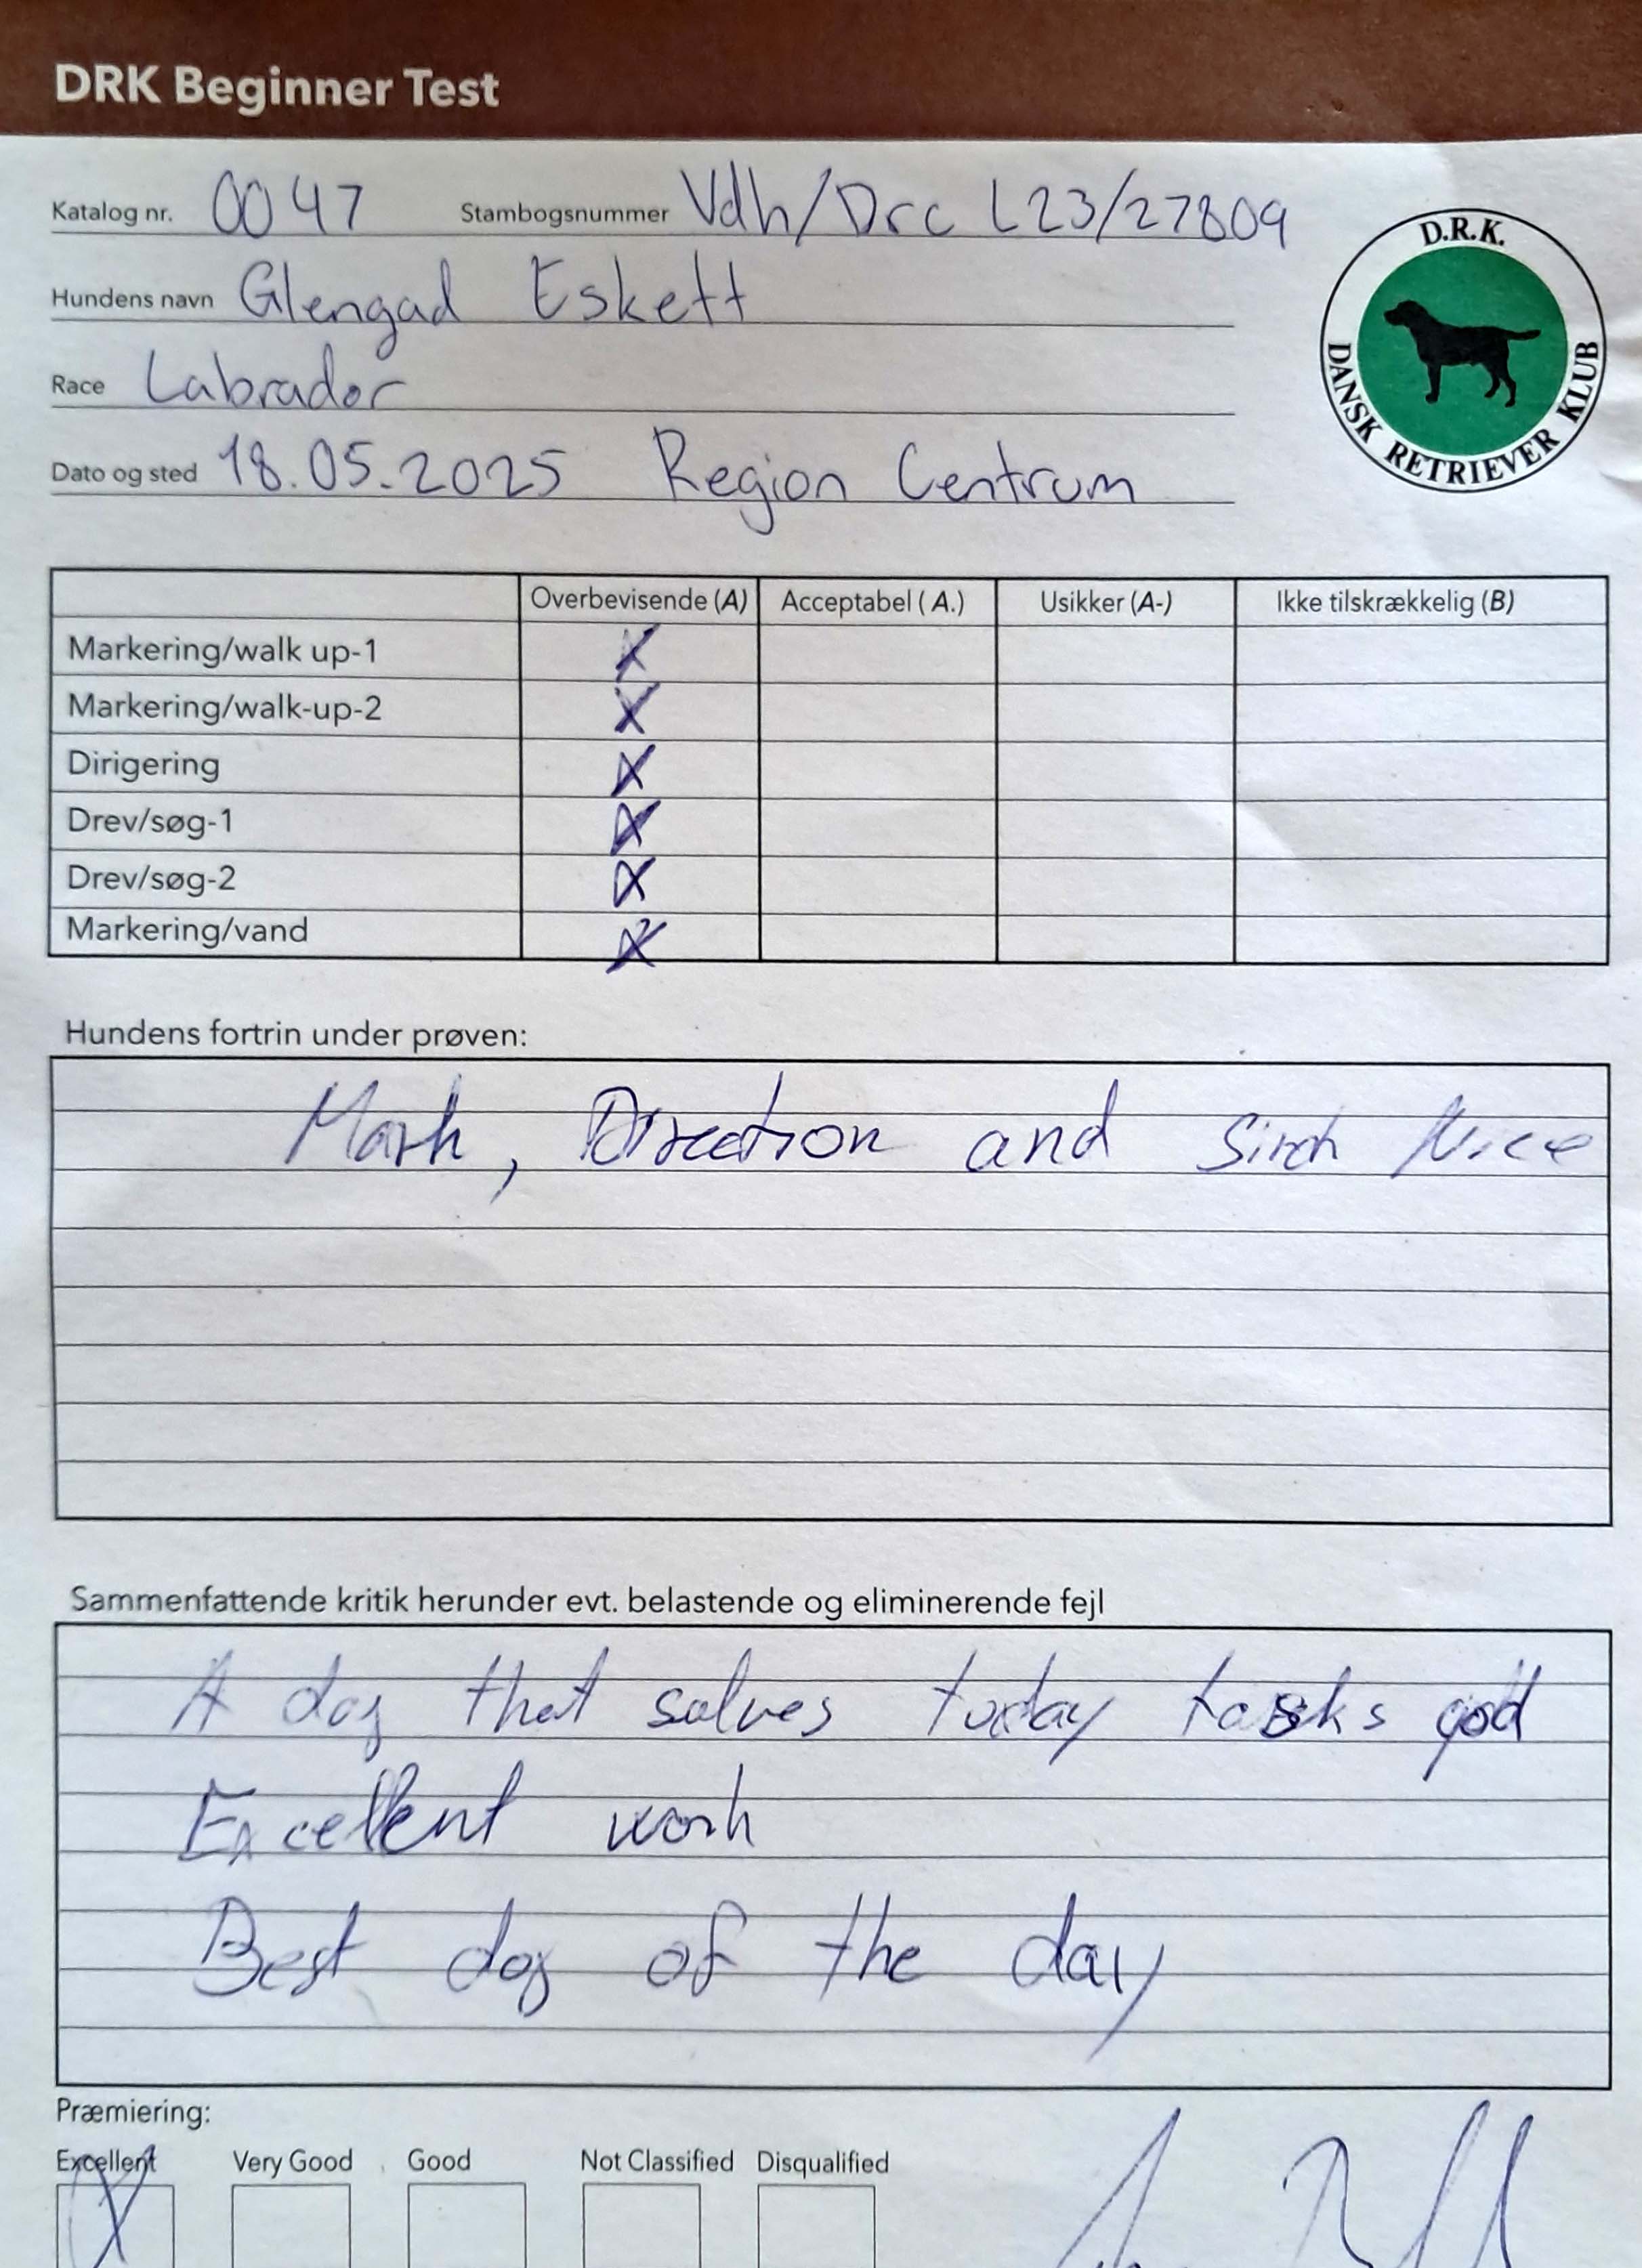 DRK Beginner Test
Katalog nr. 0047 Stambogsnummer Vdh/Drc L23/27809
Hundens navn Glengad Eskett
Race Labrador
Dato og sted 18.05.2025 Region Centrum
D.R.K.
DANSK RETRIEVER KLUB
Overbevisende (A) Acceptabel ( A.) Usikker (A-) Ikke tilskrækkelig (B)
Markering/walk up-1 X
Markering/walk-up-2 X
Dirigering X
Drev/søg-1 X
Drev/søg-2 X
Markering/vand X
Hundens fortrin under prøven:
Mark, Direction and Sirch Nice
Sammenfattende kritik herunder evt. belastende og eliminerende fejl
A dog that solves today tasks god
Excellent work
Best dog of the day
Præmiering:
Excellent Very Good Good Not Classified Disqualified
X